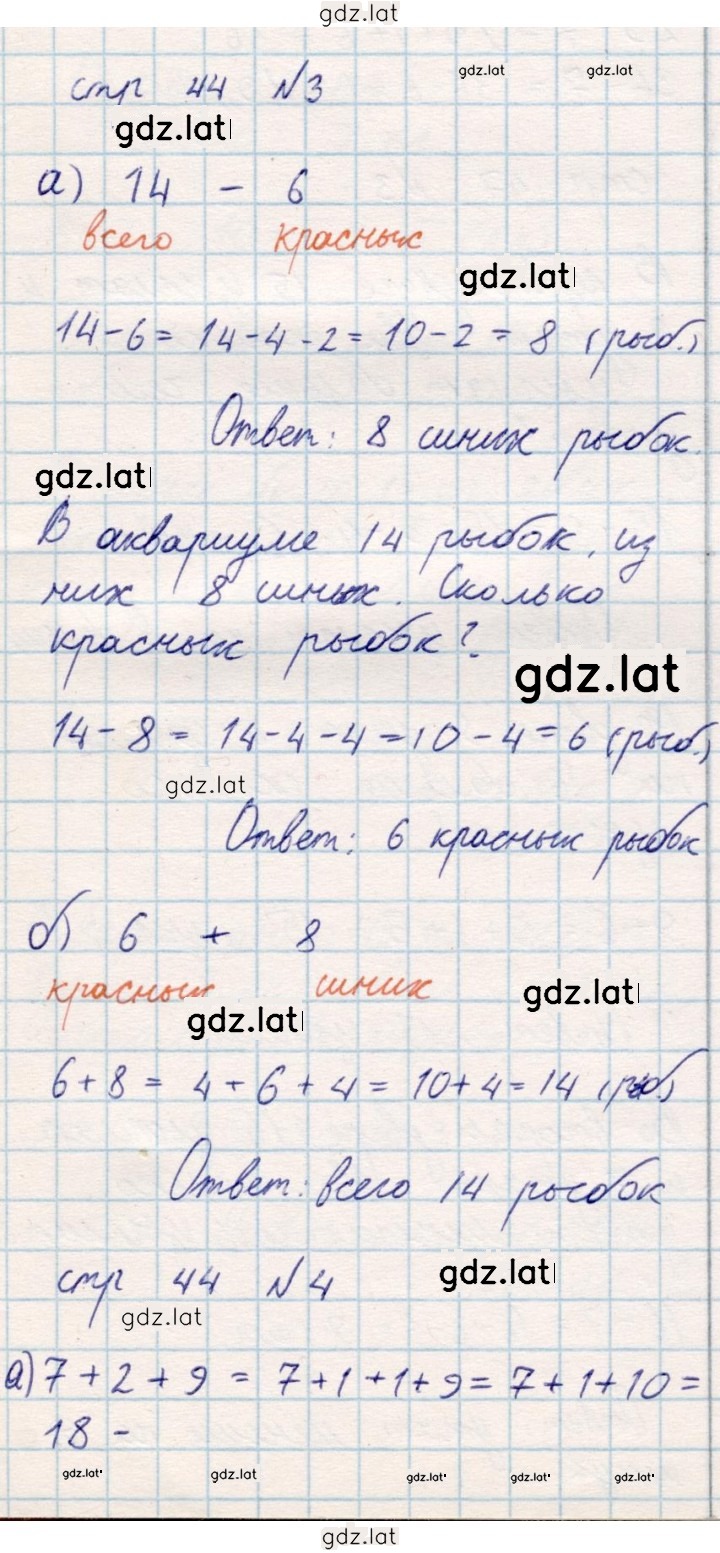 gdz.lat
стр 44 №3
gdz.lat gdz.lat
gdz.lat
а) 14 - 6
всего красных
gdz.lat
14-6= 14-4-2= 10-2= 8 (рыб.)
Ответ: 8 синих рыбок.
gdz.lat
В аквариуме 14 рыбок, из
них 8 синих. Сколько
красных рыбок?
gdz.lat
14-8= 14-4-4=10-4=6 (рыб.)
gdz.lat
Ответ: 6 красных рыбок
б) 6 + 8
красных синих
gdz.lat
gdz.lat
6+8= 4+6+4= 10+4=14 (рыб.)
Ответ: всего 14 рыбок
стр 44 №4
gdz.lat
gdz.lat
а) 7+2+9 = 7+1+1+9= 7+1+10=
18 -
gdz.lat gdz.lat gdz.lat gdz.lat gdz.lat
gdz.lat